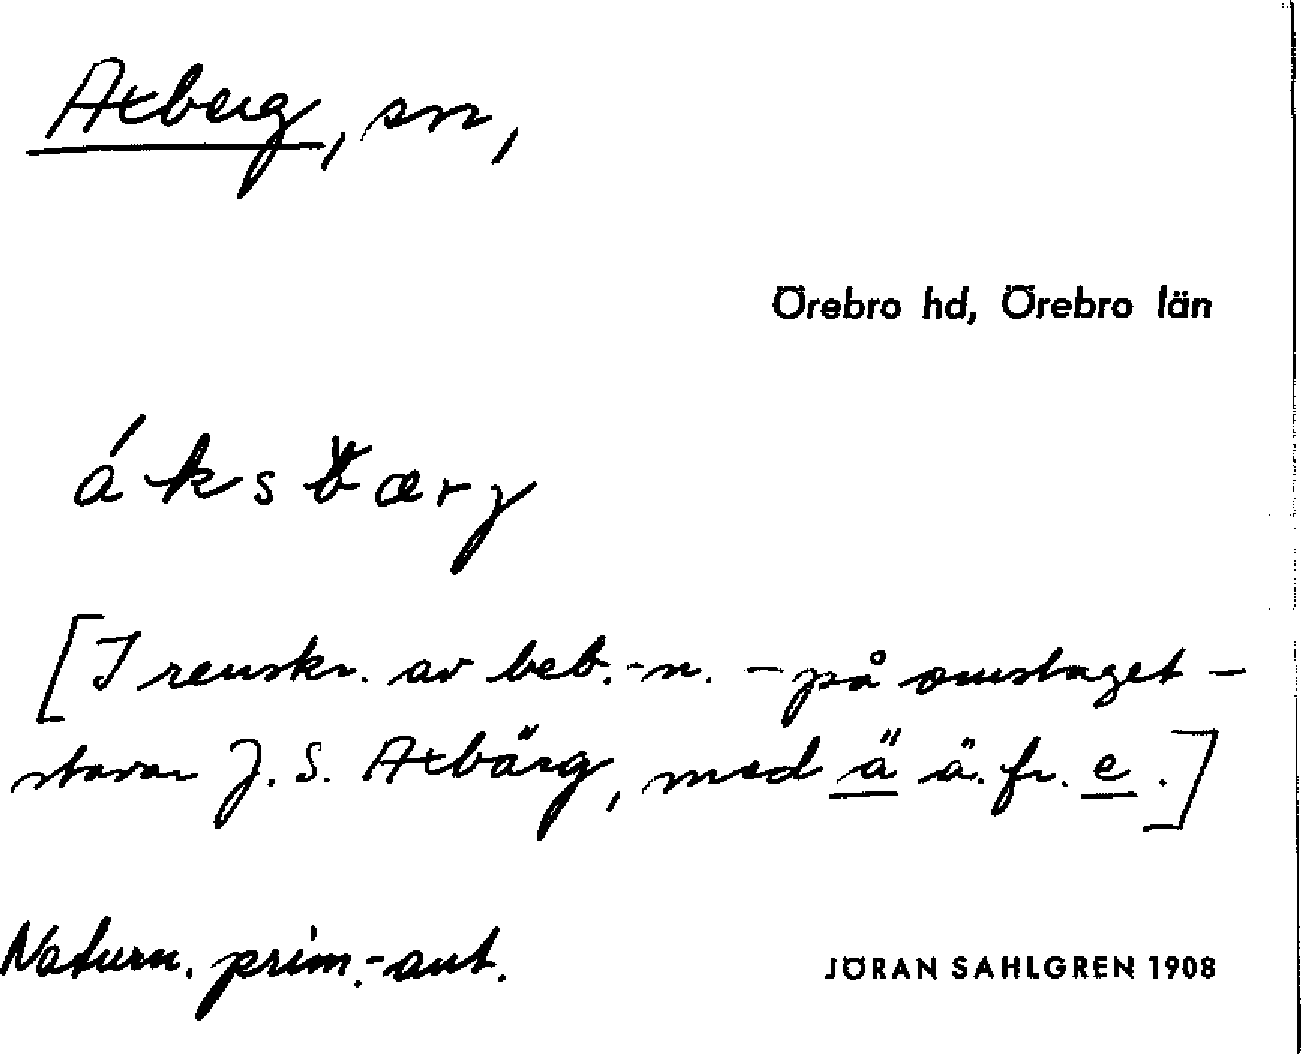 Axberg, sn,
Örebro hd, Örebro län
áksbærg
[I renskr. av beb.-n. – på omslaget –
stavar J. S. Axbärg, med ä ä. fr. e.]
Naturn. prim.-ant.
JÖRAN SAHLGREN 1908